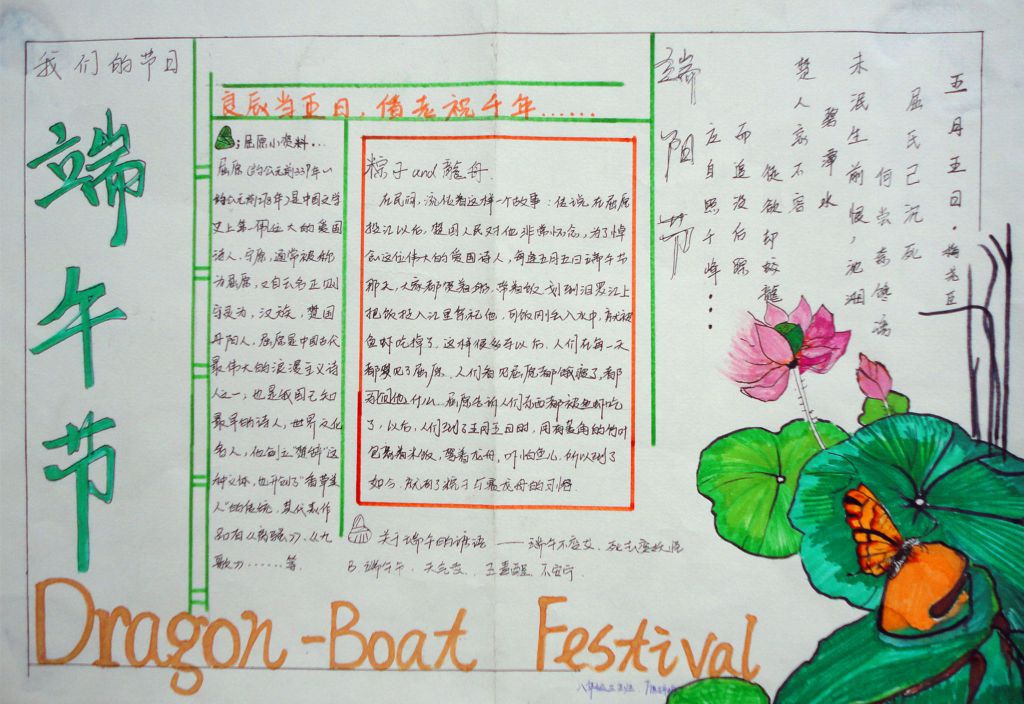 我们的节日
端午节
良辰当五日,偕老祝千年......
:屈原小资料...
屈原(约公元前339年~
约公元前278年)是中国文学
史上第一位伟大的爱国
诗人。芈原,通常被称
为屈原,又自云名正则
字灵均,汉族,楚国
丹阳人,屈原是中国古代
最伟大的浪漫主义诗
人之一,也是我国已知
最早的诗人,世界文化
名人,他创立"楚辞"这
种文体,也开创了"香草美
人"的传统,其代表作
品有《离骚》、《九
歌》......等
粽子and龍舟
在民间,流传着这样一个故事:传说,在屈原
投江以后,楚国人民对他非常怀念,为了悼
念这位伟大的爱国诗人,每逢五月五日端午节
那天,大家都驾着船,带着饭划到汨罗江上
把饭投入江里祭祀他,可饭团丢入水中,
鱼虾吃掉了,这样很多年以后,人们在每一天
都梦见了屈原,人们看见屈原都饿瘦了,都
问他什么,屈原告诉人们东西都被鱼虾吃
了,以后,人们到了五月五日时,用有菱角的竹叶
包裹着米饭,驾着龙舟,吓怕鱼儿,所以到了
如今,就有了粽子与赛龙舟的习俗
关于端午的谚语——端午不戴艾,死去变妖怪
B 端午午,天气变,五毒醒,不安宁
端阳节
五月五日·梅尧臣
屈氏已沉死
楚人哀不容
何尝奈谗谤
徒欲却蛟龍
未泯生前恨,
而追没后踪
碧潭水
应自照千峰...
Dragon-Boat Festival